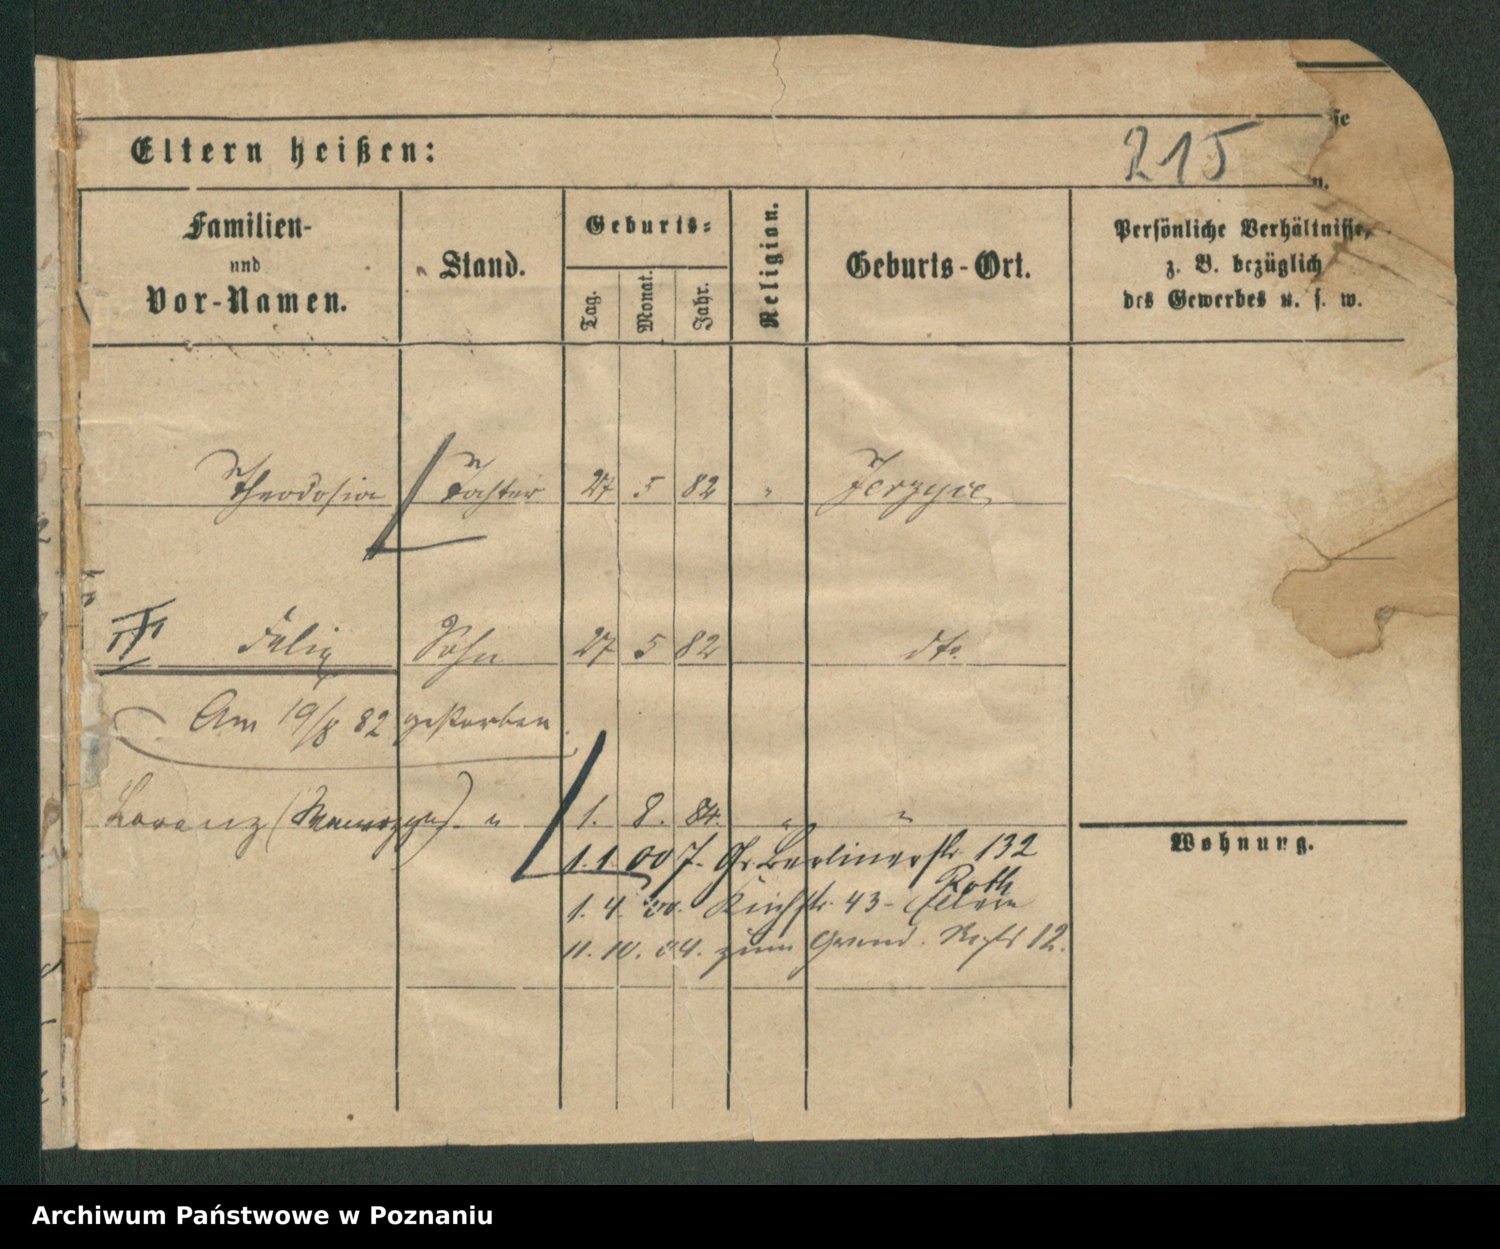 Eltern heißen:
215
Familien-
und
Vor-Namen.
Stand.
Geburts-
Tag.
Monat.
Jahr.
Religion.
Geburts-Ort.
Persönliche Verhältnisse,
z. B. bezüglich
des Gewerbes u. s. w.
Theodosia Tochter 27 5 82 " Jerzyce
III Felix Sohn 27 5 82 dto.
Am 19/8 82 gestorben
Lorenz (Wawrzyn) " 1. 8. 84. " "
Wohnung.
1. 1. 00 7. Gr. Berlinerstr 132
Roth
1. 4. 00. Kirchstr. 43 - Eltern
11. 10. 04. zum 12.
Archiwum Państwowe w Poznaniu